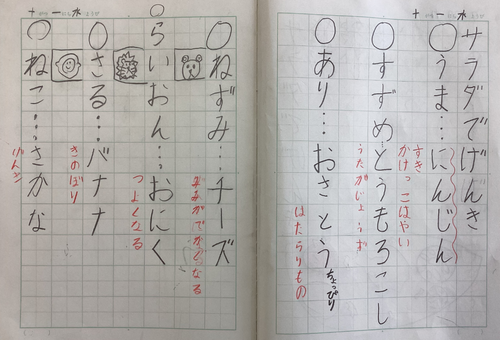 十 一 水
サラダでげんき
○うま…にんじん
すき
かけっこはやい
○すずめ…とうもろこし
うたがじょうず
○あり…おさとうちょっぴり
はたらきもの
十 一 水
○ねずみ…チーズ
○らいおん…おにく
つよくなる
○さる…バナナ
きのぼり
○ねこ…さかな
げんき